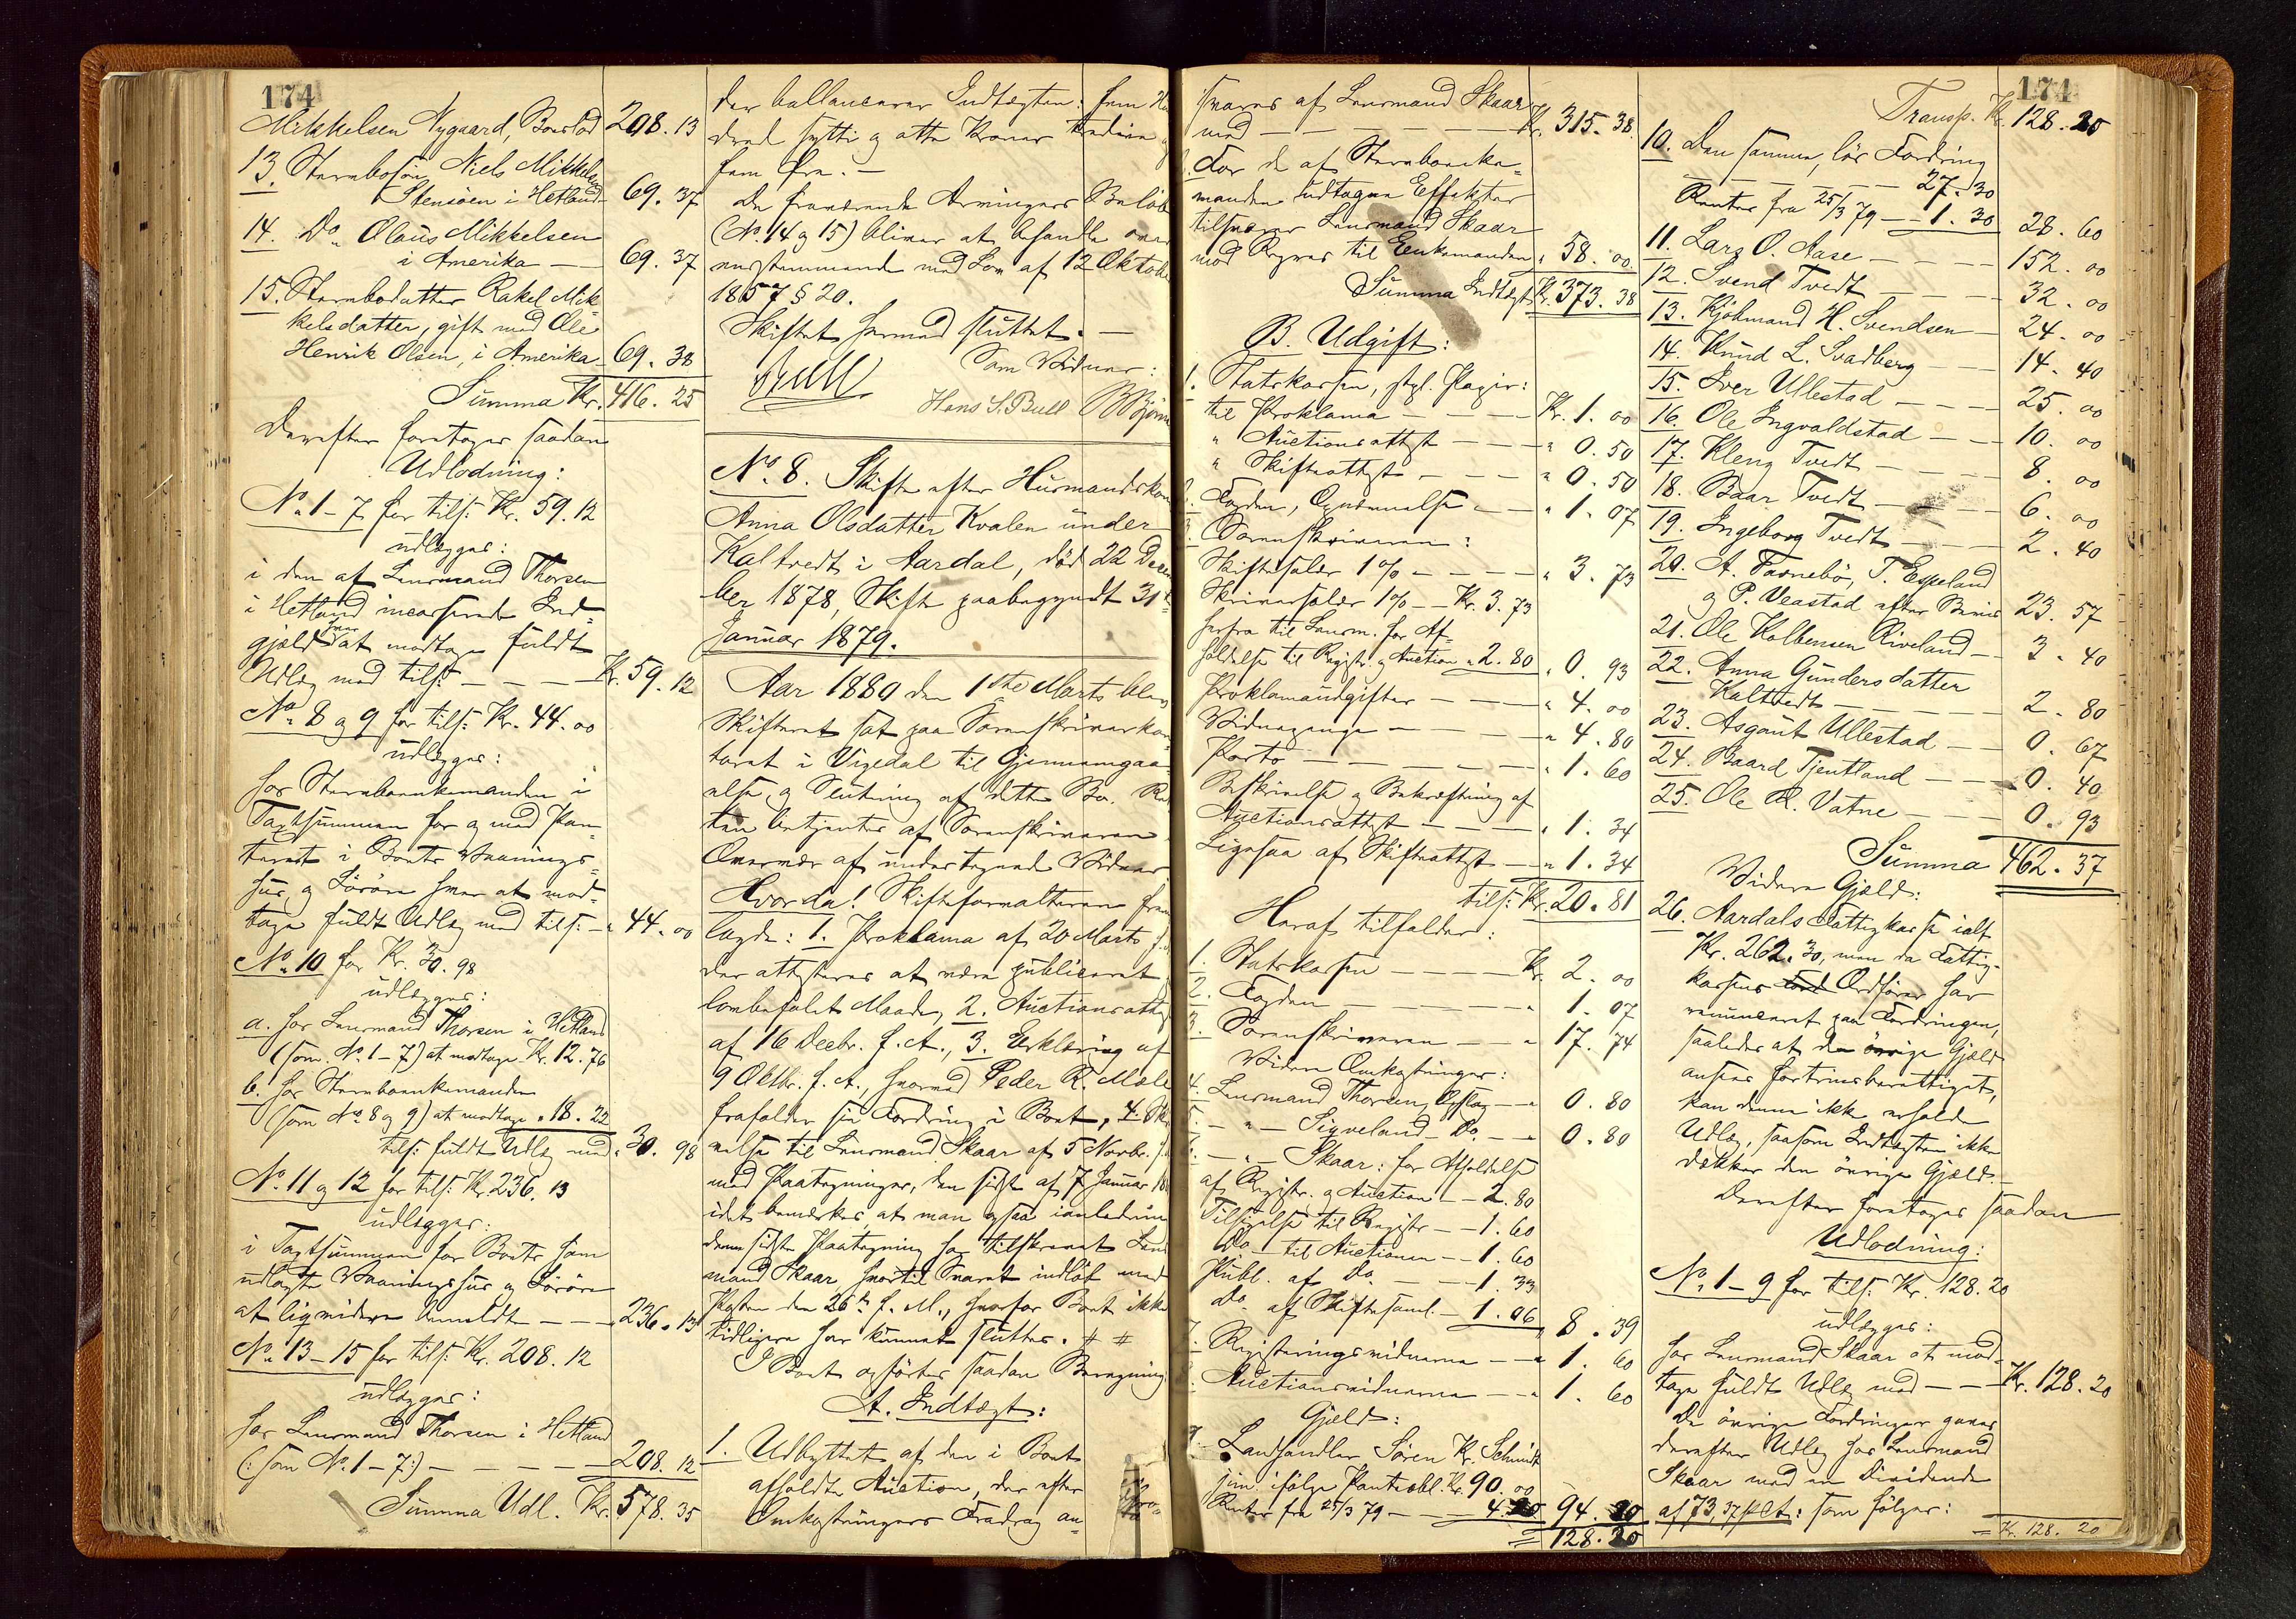 174
Mikkelsen Nygaard, Bousted 208. 13
13. Stervbosøn Niels Mikkelsen
Stensøen i Hetland 69. 37
14. Do Olaus Mikkelsen
i Amerika — 69. 37
15. Stervbodatter Rakel Mik-
kelsdatter, gift med Ole
Henrik Olsen, i Amerika 69. 38
Summa Kr. 416. 25
Derefter foretoges saadan
Udlodning:
No. 1-7 for tils. Kr. 59. 12
udlægges:
i den af Lensmand Thorsen
i Hetland incasserede Ind-
gjæld at modtage fuldt
Udlæg med tils. — — — Kr. 59. 12
No. 8 og 9 for tils. Kr. 44. 00
udlægges:
hos Stervboenkemanden i
Taxtsummen for og med Pan-
teret i Boets Vaanings-
hus og Løsøre at mod-
tage fuldt Udlæg med tils. — " 44. 00
No. 10 for Kr. 30. 98
udlægges:
a. hos Lensmand Thorsen i Hetland
(som No. 1-7) at modtage Kr. 12. 76
b. hos Stervboenkemanden
(som No. 8 og 9) at modtage " 18. 22
tils. fuldt Udlæg med " 30. 98
No. 11 og 12 for tils. Kr. 236. 13
udlægges:
i Taxtsummen for Boets ham
udlagte Vaaningshus og Løsøre
at liqvidere anmeldt — — — " 236. 13
No. 13-15 for tils. Kr. 208. 12
udlægges:
hos Lensmand Thorsen i Hetland
(: som No. 1-7:) — — — — 208. 12
Summa Udl. Kr. 578. 35
der ballancerer Indtægten: fem Hun
drede sytti og otte Kroner tredive og
fem Øre. —
De fraværende Arvingers Beløb
(No. 14 og 15) bliver at behandle over
ensstemmende med Lov af 12 Oktober
1857 § 20.
Skiftet hermed sluttet. —
Som Vidner:
Bull
Hans S. Bull
No. 8. Skifte efter Husmandskone
Anna Olsdatter Kvalen under
Kaltvedt i Aardal, død 22 Decem
ber 1878, Skifte paabegyndt 31te
Januar 1879.
Aar 1880 den 1ste Marts blev
Skifteret sat paa Sorenskriverkon-
toret i Vigedal til Gjennemgaa-
else og Slutning af dette Bo. Ret
ten betjentes af Sorenskriveren
Overvær af undertegnede Vidner
Hvorda! Skifteforvalteren frem
lagde: 1. Proklama af 20 Marts f.
der attesteres at være publiceret
lovbefalet Maade, 2. Auctionsattest
af 16 Decbr. f. A., 3. Erklæring af
9 Oktbr. f. A., hvorved Peder R. Mæle
frafalder sin Fordring i Boet, 4. Skri
velse til Lensmand Skaar af 5 Novbr.
med Paategninger, den sidste af 7 Januar
idet bemærkes, at man ogsaa i anledning
denne sidste Paategning har tilskrevet Lens
mand Skaar, hvortil Svaret indløb med
Posten den 26de f. M., hvorfor Boet ikke
tidligere har kunnet sluttes. # #
I Boet opførtes saadan Beregning
A. Indtægt:
1. Udbyttet af den i Boet
afholdte Auction, der efter
Omkostningers Fradrag an-
svares af Lensmand Skaar
med — — — — — Kr. 315. 38.
For de af Stervboenke-
manden udtagne Effekter
tilsvarer Lensmand Skaar
mod Regres til Enkemanden " 58. 00
Summa Indtægt Kr. 373. 38
B. Udgift:
1. Statskassen, stpl. Papir:
til Proklama — — — Kr. 1. 00
" Auctionsattest — — — " 0. 50
" Skifteattest — — — " 0. 50
2. Fogden, — — " 1. 07
3. Sorenskriveren:
Skiftesalær 1% — — — " 3. 73
Skriversalær 1% — — Kr. 3. 73
herfra til Lensm. for Af-
holdelse til Registr. og Auction " 2. 80 " 0. 93
Proklamaudgifter — — — " 4. 00
Vidnepenge — — — — " 4. 80
Porto — — — — — " 1. 60
Beskrivelse og Bekræftning af
Auctionsattest — — — " 1. 34
Ligesaa af Skifteattest — " 1. 34
tils. Kr. 20. 81
Heraf tilfalder:
1. Statskassen — — — Kr. 2. 00
2. Fogden — — — — " 1. 07
3. Sorenskriveren — — " 17. 74
Videre Omkostninger:
4. Lensmand Thorsen, Opslag — " 0. 80
5. — " — Sigveland — Do. — " 0. 80
6. — " — Skaar: for Afholdelse
af Registr. og Auction — 2. 80
Tilsigelse til Registr. — 1. 60
Do — til Auctionen — 1. 60
Publ. af Do. — — — 1. 33
Do. af Skiftesaml. — 1. 06 " 8. 39
7. Registreringsvidnerne — — " 1. 60
8. Auctionsvidnerne — — " 1. 60
Gjæld:
9. Landhandler Søren Kr. Schmidt
jun. ifølge Panteobl. Kr. 90. 00
Renter fra 25/3 79 — — 4. 20 94. 20
128. 20
174
Transp. Kr. 128. 20
10. Den samme, løs Fordring
— — — — — 27. 30
Renter fra 25/3 79 — 1. 30 28. 60
11. Lars O. Aase — — — 152. 00
12. Svend Tvedt — — — 32. 00
13. Kjøbmand H. Svendsen — 24. 00
14. Knud L. Svadberg — — 14. 40
15. Iver Ullestad — — — 25. 00
16. Ole Ingvaldstad — — — 10. 00
17. Kleng Tvedt — — — 8. 00
18. Baar Tvedt — — — 6. 00
19. Ingeborg Tvedt — — — 2. 40
20. A. Tasnebø, T. Espeland
og P. Veastad efter Bevis 23. 57
21. Ole Kolbensen Riveland — 3. 40
22. Anna Gundersdatter
Kaltvedt — — — — 2. 80
23. Asgaut Ullestad — — 0. 67
24. Baard Tjentland — — 0. 40
25. Ole R. Vatne — — — 0. 93
Summa 462. 37
Videre Gjæld:
26. Aardals Fattigkasse ialt
Kr. 262. 30, men da Fattig-
kassens Ordfører har
renunceret paa Fordringen,
saaledes at den øvrige Gjæld
ansees fortrinsberettiget,
kan denne ikke erholde
Udlæg, saasom Indtægten ikke
dækker den øvrige Gjæld. —
Derefter foretoges saadan
Udlodning:
No. 1-9 for tils. Kr. 128. 20
udlægges:
hos Lensmand Skaar at mod-
tage fuldt Udlæg med — — Kr. 128. 20
De øvrige Fordringer gives
derefter Udlæg hos Lensmand
Skaar med en Dividende
af 73,37 pCt: som følger:
= Kr. 128. 20